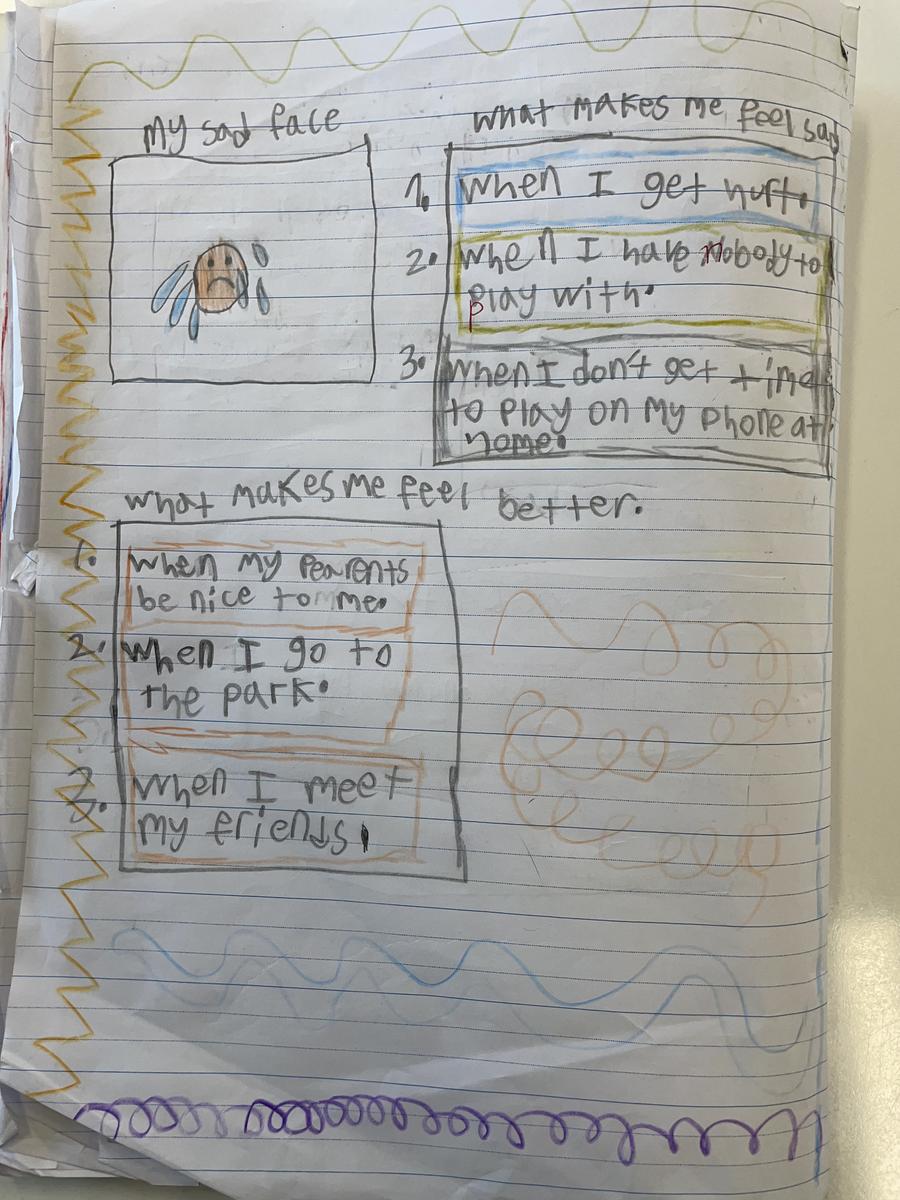 My sad face
what makes me feel sad
1. when I get hurt.
2. when I have Nobody to
play with.
3. when I don't get time
to play on my phone at
home.
what makes me feel better.
1. when my Pearents
be nice to me.
2. when I go to
the park.
3. when I meet
my friends.